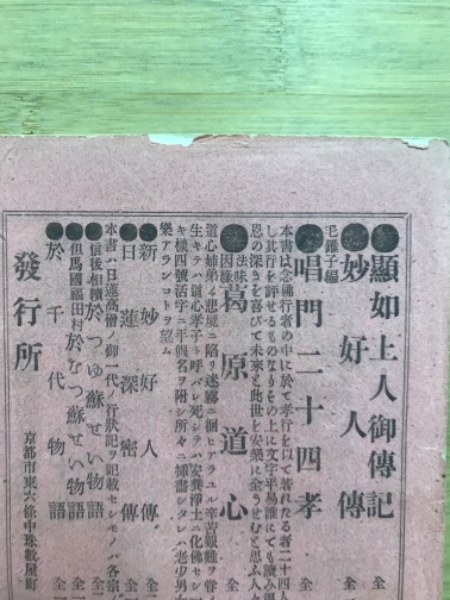 ●顯如上人御傳記 全
●妙好人傳 全
●唱門二十四孝 全
本書は念佛行者の中に於て孝行を以て著れたる者二十四人
し其行を評せるものなりその上に文字平易誰にても讀み得
恩の深きを喜びて未來と此世を安樂に全うせむと思ふ人々
●葛原道心 全
道心姉弟ノ悲境ニ陷リ迷霧ニ徊ヒアラユル辛苦艱難ヲ甞
生キテハ道心孝子ト呼バレ死シテハ安養淨土ニ化佛セシ
キ樣四號活字ニ平假名ヲ附シ所々ニ揷畵シタレハ老少男女
樂アランコトヲ望ム
●新妙好人傳 全
●日蓮深密傳 全
本書ハ日蓮高僧ノ御一代ノ行狀記ヲ記載セシモノハ各宗
●信後相續 於つゆ蘇せい物語 全
●但馬國福田村 於なつ蘇せい物語 全
●於千代物語 全
發行所
京都市東六條中珠數屋町